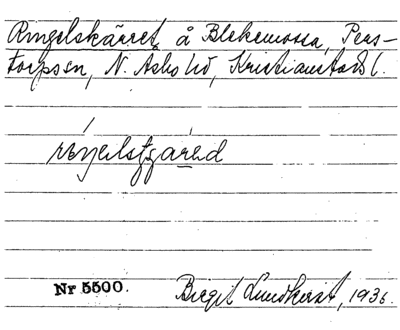 Ringelskärret å Blekemossa, Pers-
torpssn, N. Åsbo hd, Kristianstads l.
Nr 5500. Birgit Lundkvist, 1936.